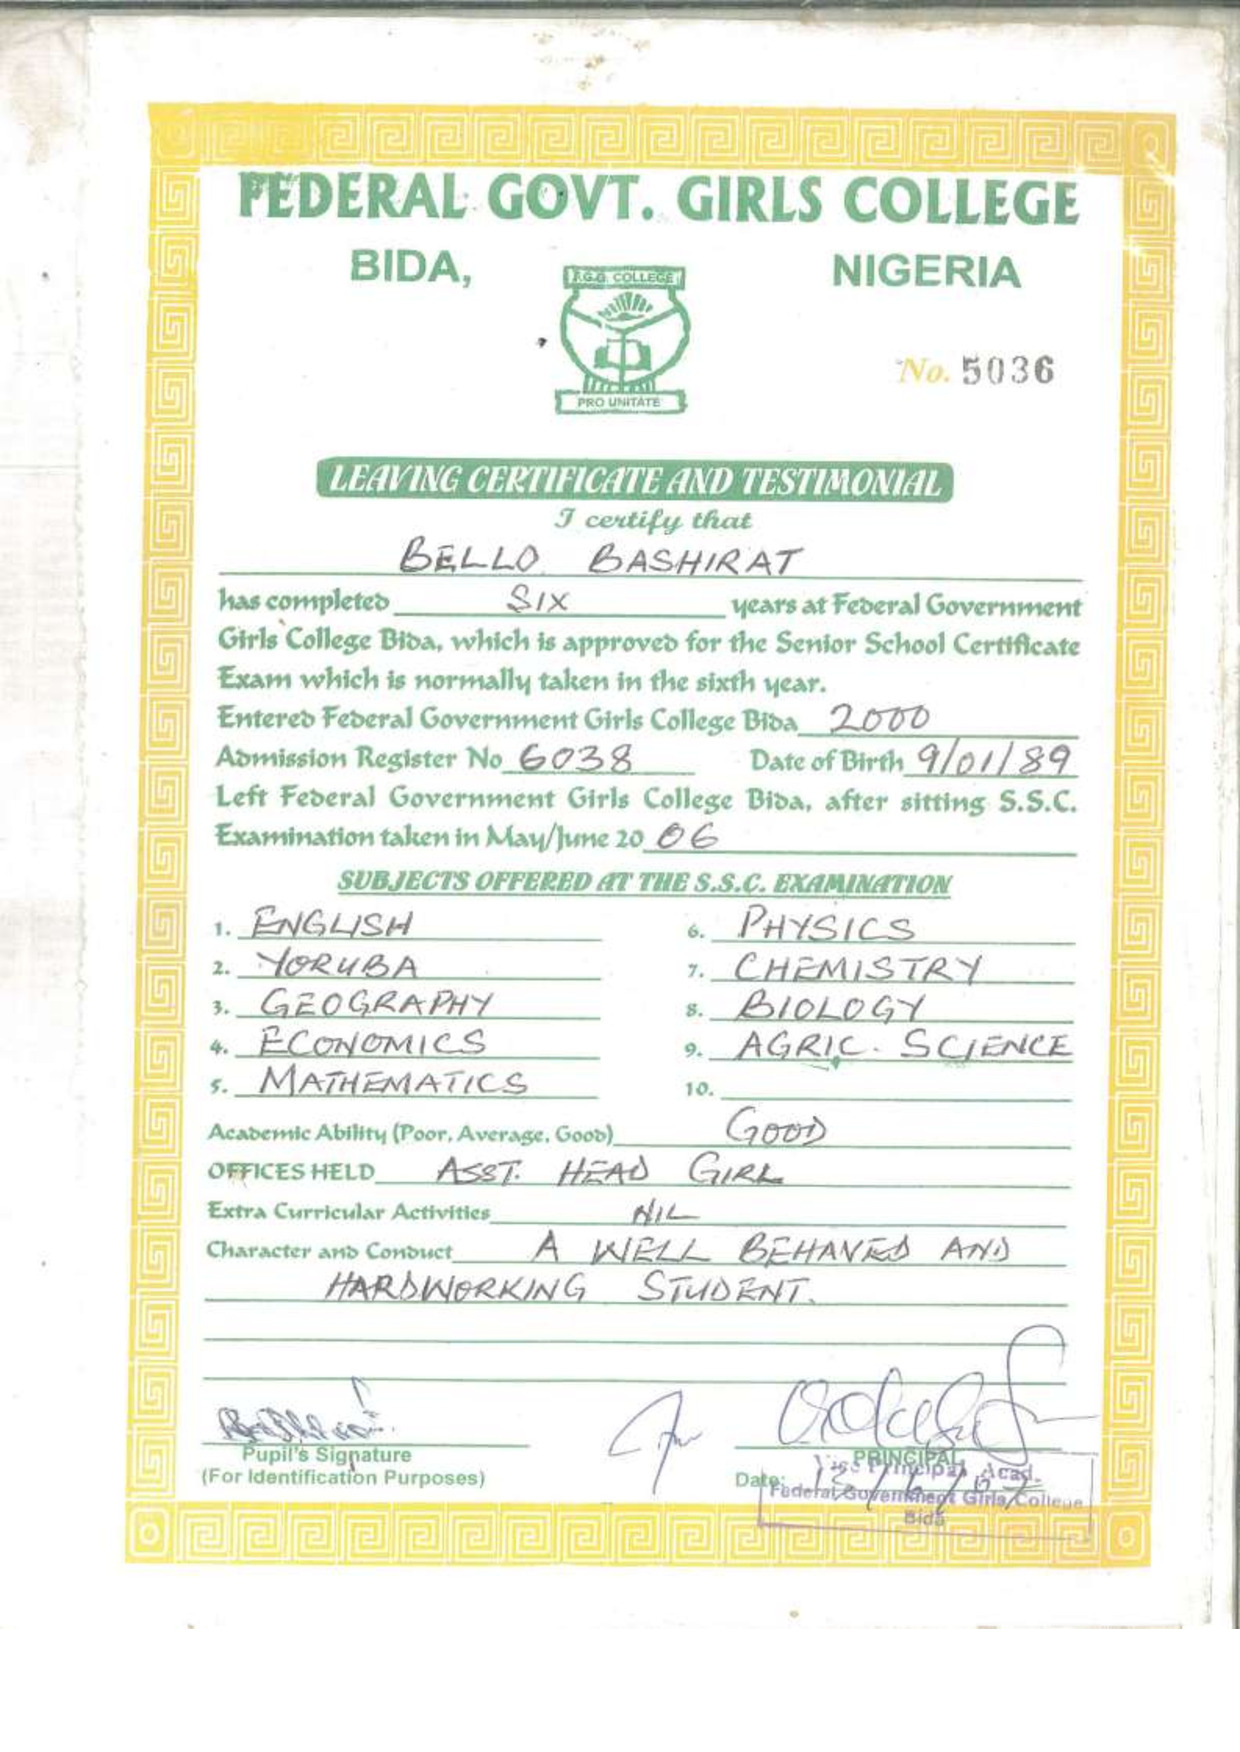 FEDERAL GOVT. GIRLS COLLEGE
BIDA, NIGERIA
F.G.G. COLLEGE
PRO UNITATE
No. 5036
LEAVING CERTIFICATE AND TESTIMONIAL
I certify that
BELLO BASHIRAT
has completed SIX years at Federal Government
Girls College Bida, which is approved for the Senior School Certificate
Exam which is normally taken in the sixth year.
Entered Federal Government Girls College Bida 2000
Admission Register No 6038 Date of Birth 9/01/89
Left Federal Government Girls College Bida, after sitting S.S.C.
Examination taken in May/June 20 06
SUBJECTS OFFERED AT THE S.S.C. EXAMINATION
1. ENGLISH 6. PHYSICS
2. YORUBA 7. CHEMISTRY
3. GEOGRAPHY 8. BIOLOGY
4. ECONOMICS 9. AGRIC. SCIENCE
5. MATHEMATICS 10.
Academic Ability (Poor, Average, Good) GOOD
OFFICES HELD ASST. HEAD GIRL
Extra Curricular Activities NIL
Character and Conduct A WELL BEHAVED AND
HARDWORKING STUDENT.
For
Pupil's Signature PRINCIPAL
(For Identification Purposes) Date:
Vice Principal Acad.
Federal Government Girls College
Bida